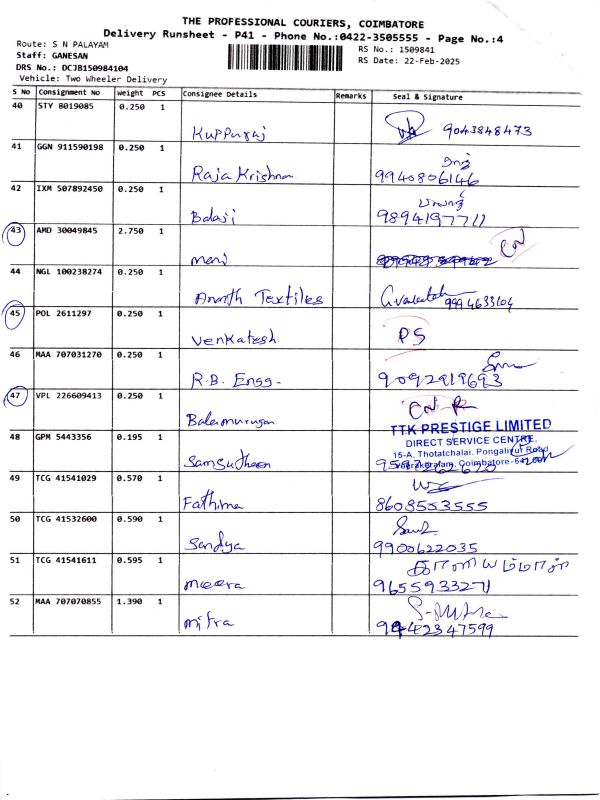 THE PROFESSIONAL COURIERS, COIMBATORE
Delivery Runsheet - P41 - Phone No.:0422-3505555 - Page No.:4
Route: S N PALAYAM
RS No.: 1509841
Staff: GANESAN
RS Date: 22-Feb-2025
DRS No.: DCJB150984104
Vehicle: Two Wheeler Delivery
S No Consignment No Weight PCS Consignee Details Remarks Seal & Signature
40 STY 8019085 0.250 1
Kuppuraj 9043848473
41 GGN 911590198 0.250 1
Raja Krishna 9940806146
42 IXM 507892450 0.250 1
Balaji 9894197711
43 AMD 30049845 2.750 1
Mani
44 NGL 100238274 0.250 1
Ananth Textiles 9994633104
45 POL 2611297 0.250 1
Venkatesh PS
46 MAA 707031270 0.250 1
R.B. Engg- 9092919693
47 VPL 226609413 0.250 1
Balamurugan
TTK PRESTIGE LIMITED
48 GPM 5443356 0.195 1
DIRECT SERVICE CENTRE,
15-A, Thotatchalai, Pongaliyur Road
Samsudheen
Veerakeralam, Coimbatore-
49 TCG 41541029 0.570 1
Fathima 8608553555
50 TCG 41532600 0.590 1
Sandya 9900622035
51 TCG 41541611 0.595 1
காளியம்மாள்
meera 9655933271
52 MAA 707070855 1.390 1
Mitra 9442347599